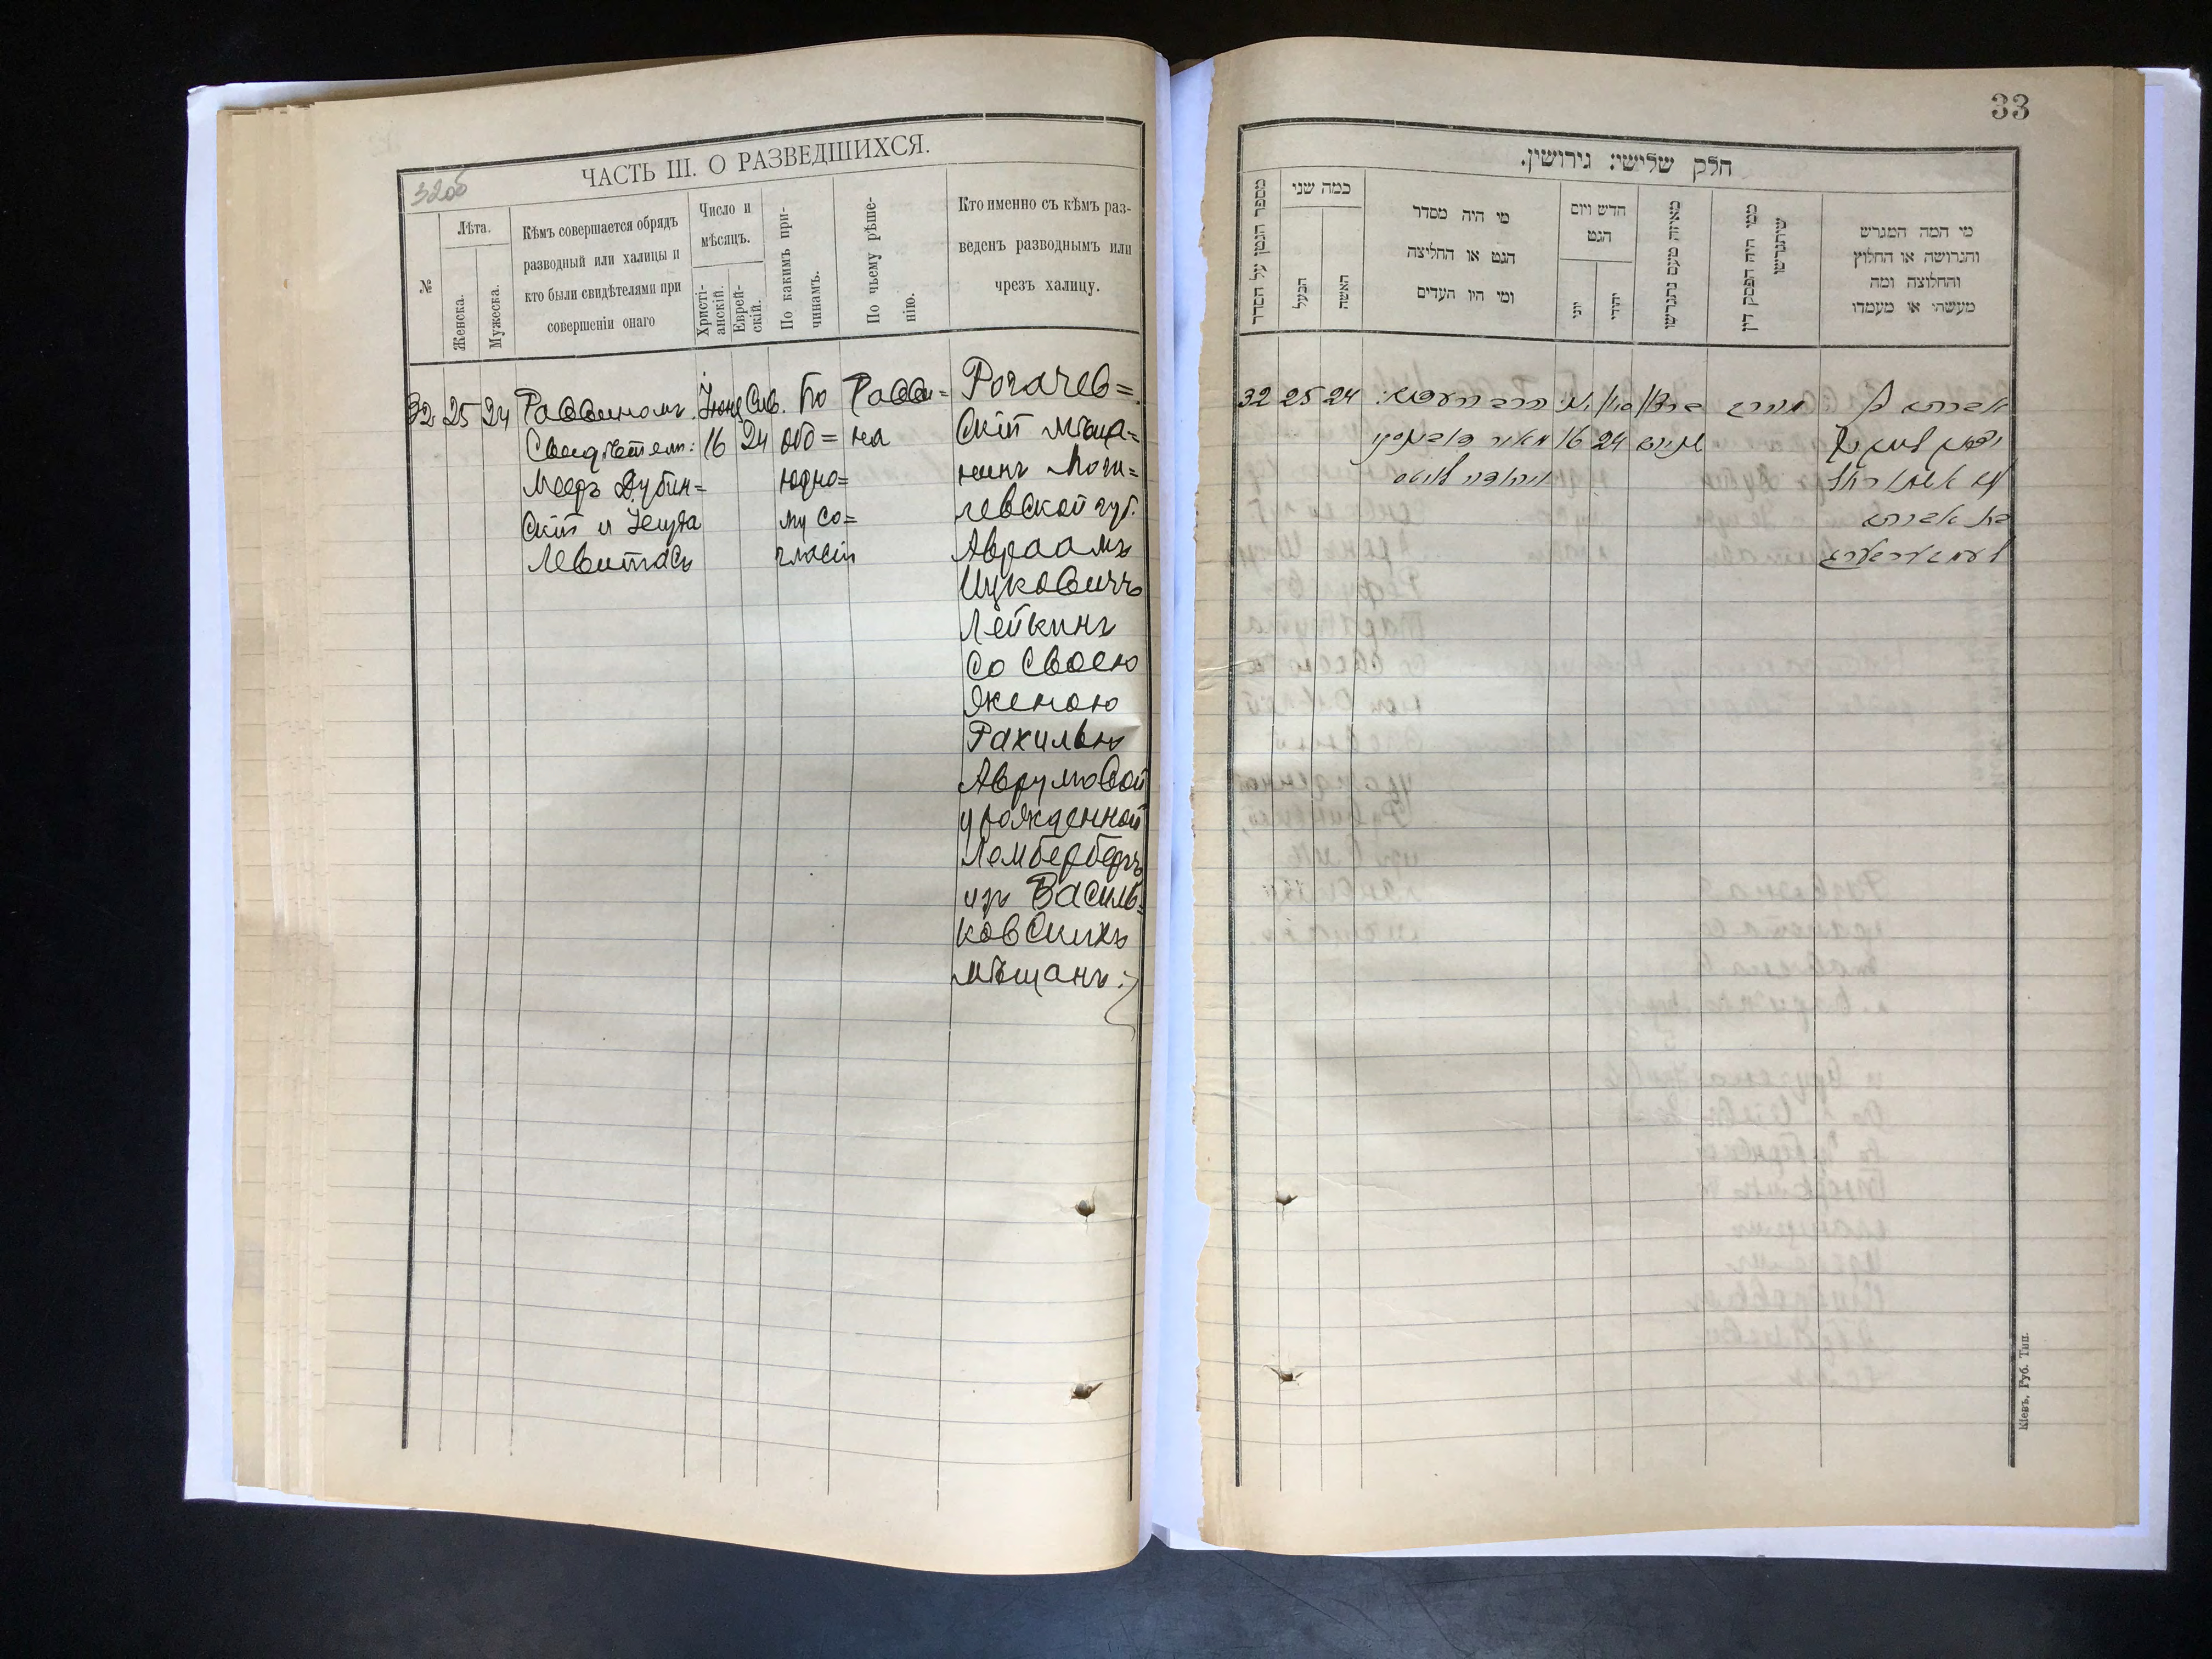 32об
ЧАСТЬ III. О РАЗВЕДШИХСЯ.
№
Лѣта.
Женска.
Мужеска.
Кѣмъ совершается обрядъ
разводный или халицы и
кто были свидѣтелями при
совершеніи онаго
Число и
мѣсяцъ.
Христі-
анскій.
Еврей-
скій.
По какимъ при-
чинамъ.
По чьему рѣше-
нію.
Кто именно съ кѣмъ раз-
веденъ разводнымъ или
чрезъ халицу.
32 25 24
Раввиномъ.
Свидѣтели:
Мееръ Дубин=
скій и Іегуда
Левитасъ
Іюнь
16
Сив.
24
По
обо=
юдно=
му со=
гласію
Равви=
на
Рогачев=
скій мѣща=
нинъ Моги=
левской губ.
Авраамъ
Ицковичъ
Лейкинъ
со своею
женою
Рахилью
Аврумовой
урожденной
Лембербергъ
изъ Василь=
ковскихъ
мѣщанъ.
33
חלק שלישי: גירושין.
מספר הגטין על הסדר
כמה שני
הבעל
האשה
מי היה מסדר
הגט או החליצה
ומי היו העדים
חדש ויום
הגט
יוני
יהודי
מאיזה טעם נתגרשו
ממי היה הפסק דין
שיתגרשו
מי המה המגרש
והגרושה או החלוץ
והחלוצה ומה
מעשה׳ או מעמדו
32 25 24
16 24
Кіевъ, Губ. Тип.